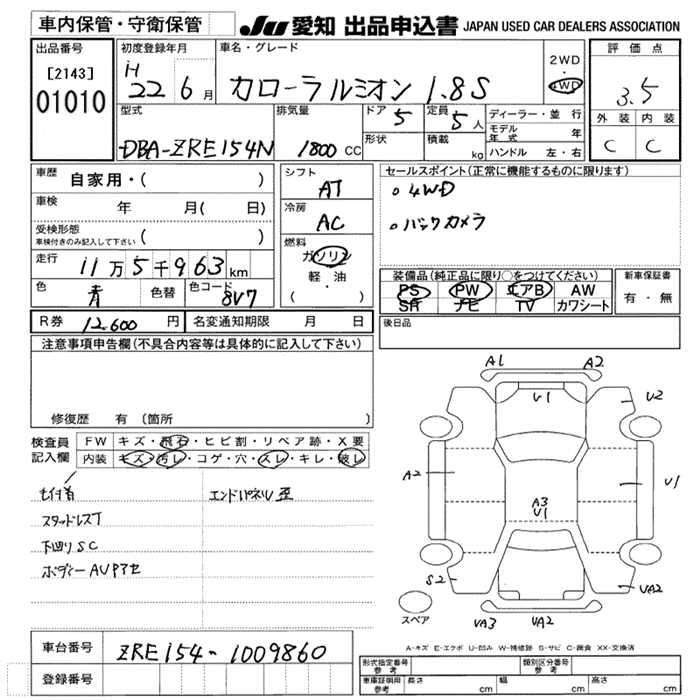 車内保管・守衛保管
JU 愛知 出品申込書 JAPAN USED CAR DEALERS ASSOCIATION
出品番号
[2143]
01010
初度登録年月
H 22 6 月
車名・グレード
カローラルミオン 1.8S
2WD
・
4WD
評価点
3.5
外装 内装
C C
型式
DBA-ZRE154N
排気量
1800 CC
ドア 5
形状
定員 5 人
積載 kg
ディーラー・並行
モデル年式 年
ハンドル 左・右
車歴 自家用・( )
車検 年 月( 日)
受検形態
車検付きのみ記入して下さい ( )
走行 11万5千963km
色 青 色替 色コード 8V7
シフト
AT
冷房
AC
燃料
ガソリン
軽・油
( )
セールスポイント(正常に機能するものに限ります)
o 4WD
o バックカメラ
装備品(純正品に限り○をつけてください)
PS PW エアB AW
SR ナビ TV カワシート
新車保証書
有・無
R券 12,600 円 名変通知期限 月 日
後日品
注意事項申告欄(不具合内容等は具体的に記入して下さい)
修復歴 有 (箇所 )
検査員
記入欄
FW キズ・飛石・ヒビ割・リペア跡・X要
内装 キズ・汚レ・コゲ・穴・スレ・キレ・破レ
エンドパネル歪
スタッドレスT
下回りSC
ボディーAUPアセ
A1 A2
U1 U2
A2 U1
A3
U1
S2 UA2
UA3 UA2
スペア
A-キズ E-エクボ U-凹み W-補修跡 S-サビ C-腐食 XX-交換済
車台番号 ZRE154-1009860
登録番号
形式指定番号
参考
類別区分番号
参考
車庫証明用
参考
長さ cm 幅 cm 高さ cm